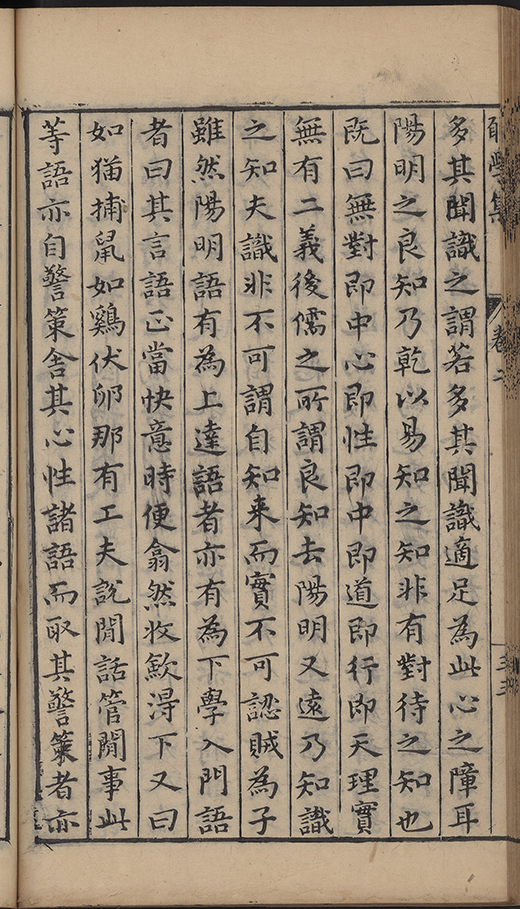 學集
卷二
多其聞識之謂若多其聞識適足為此心之障耳
陽明之良知乃乾以易知之知非有對待之知也
既曰無對即中心即性即中即道即行即天理實
無有二義後儒之所謂良知去陽明又遠乃知識
之知夫識非不可謂自知来而實不可認賊為子
雖然陽明語有為上達語者亦有為下學入門語
者曰其言語正當快意時便翕然收歛淂下又曰
如猫捕鼠如鷄伏卵那有工夫說閒話管閒事此
等語亦自警策舍其心性諸語而取其警策者亦